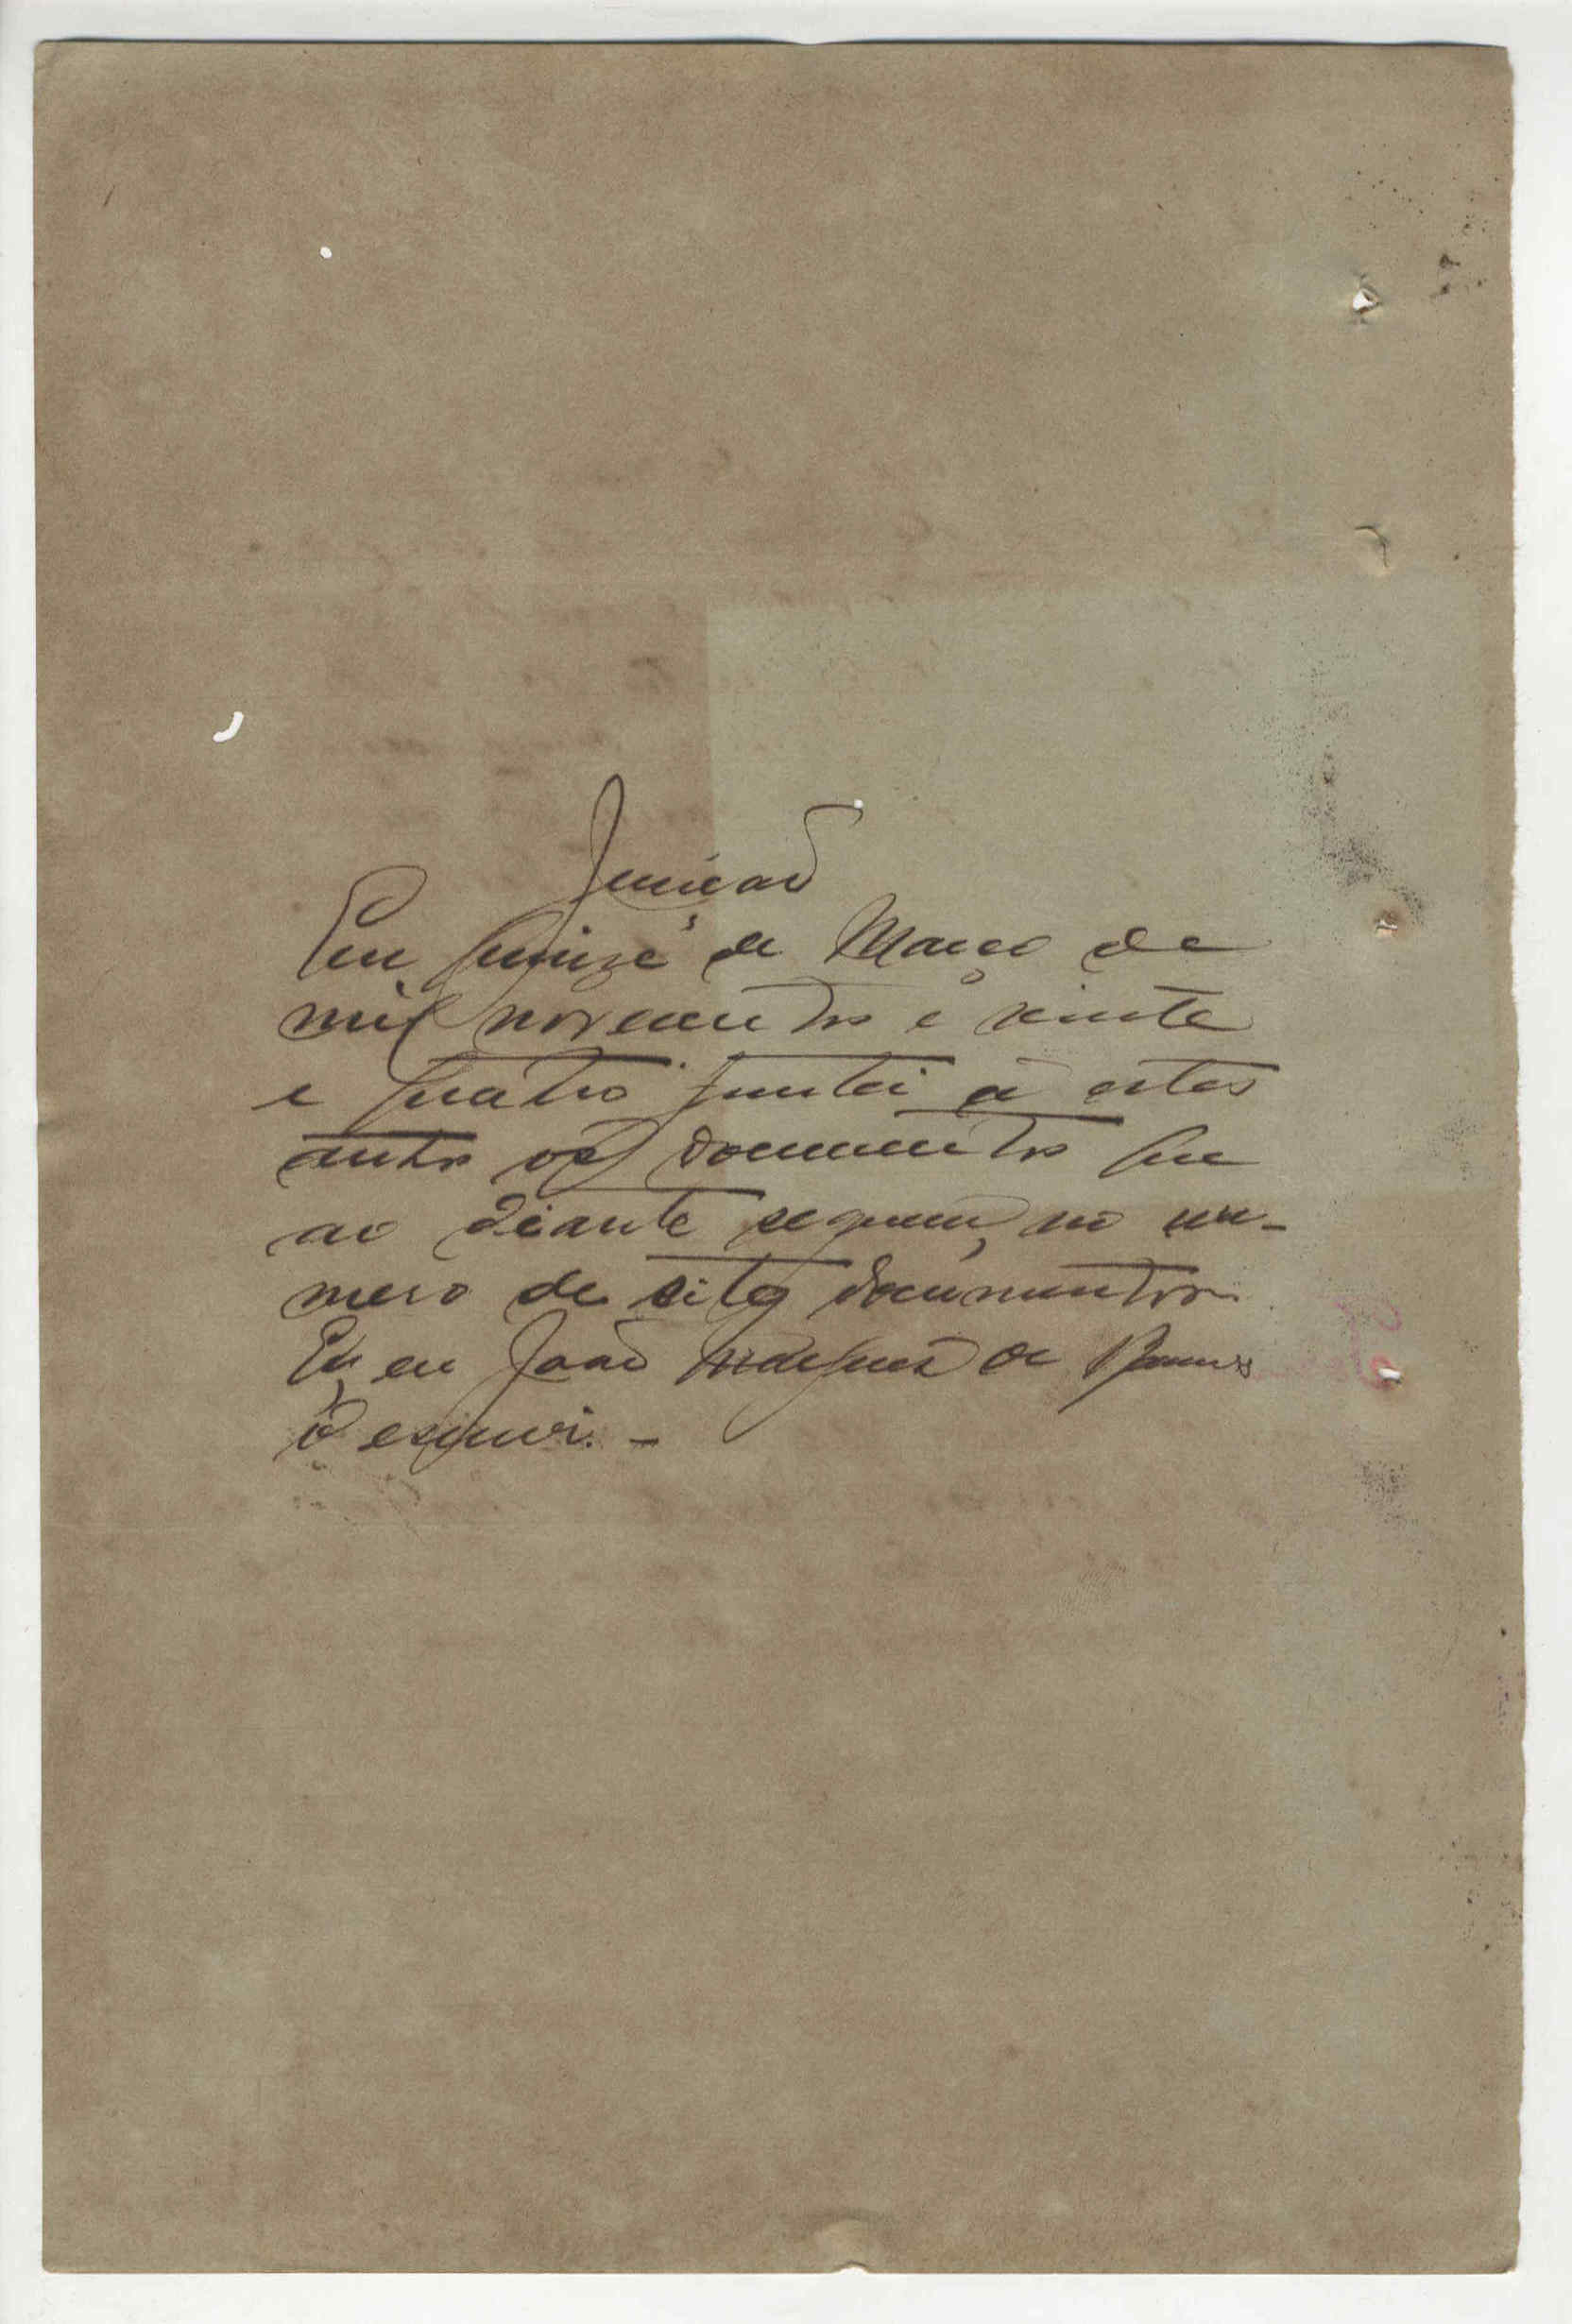 Juncção
Em quinze de Março de
mil novecentos e vinte
e quatro juntei a estes
autos os documentos que
ao diante seguem, no nu-
mero de sete documentos.
Eu, João Marques de
o escrevi. -